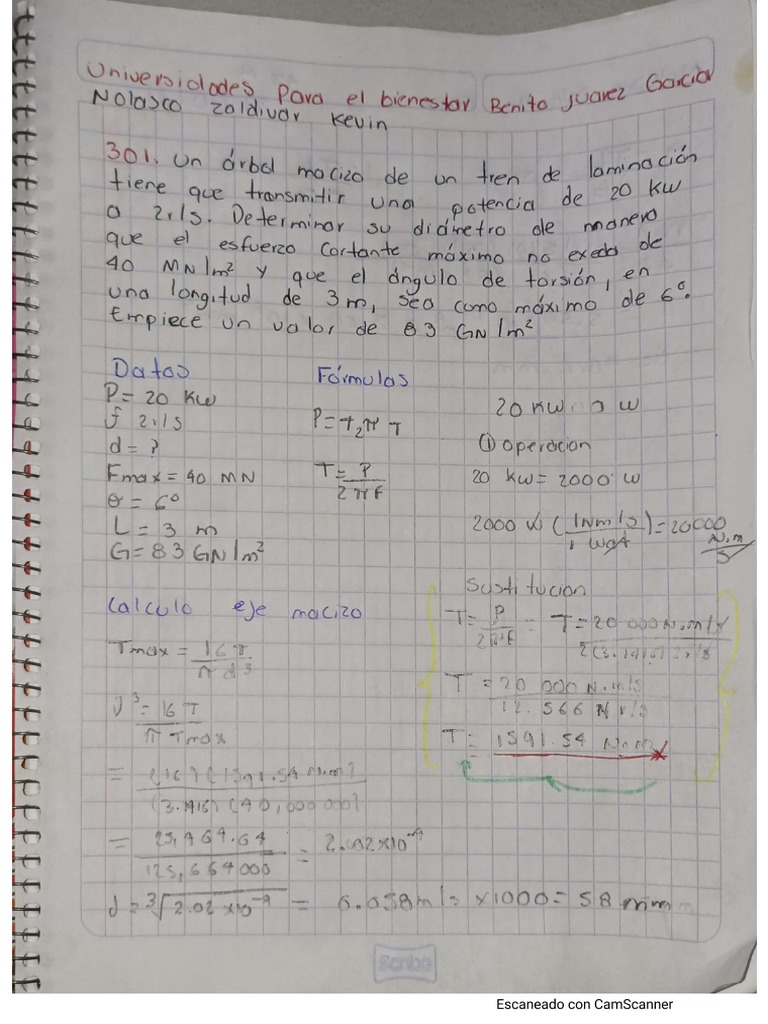 Universidades Para el bienestar Benito Juarez Garcia
Nolasco zaldivar Kevin
301. Un árbol macizo de un tren de laminación
tiene que transmitir una potencia de 20 KW
a 2r/s. Determinar su diámetro de manera
que el esfuerzo cortante máximo no exeda de
40 MN/m² y que el ángulo de torsión, en
una longitud de 3m, sea como máximo de 6°.
Empiece un valor de 83 GN/m²
Datos
P= 20 KW
f 2r/s
d= ?
Fmax = 40 MN
θ = 6°
L = 3 m
G= 83 GN/m²
Fórmulas
P= f2π T
T= P / 2πf
20 KW a W
① operacion
20 KW= 2000 W
2000 W (1Nm/s / 1 Watt)=20000 N.m/s
Sustitucion
T= P / 2πf = T= 20 000 N.m/s / 2(3.1416) 2r/s
T = 20 000 N.m/s / 12.566 r/s
T= 1591.54 N.m
Calculo eje macizo
Tmax = 16T / π d³
d³ = 16 T / π Tmax
= (16)(1591.54 N.m) / (3.1416)(40,000 000)
= 25,464.64 / 125,664000 = 2.02x10⁻⁴
d = ³√2.02 x10⁻⁴ = 0.058m/s x1000= 58 mm
Scribe
Escaneado con CamScanner